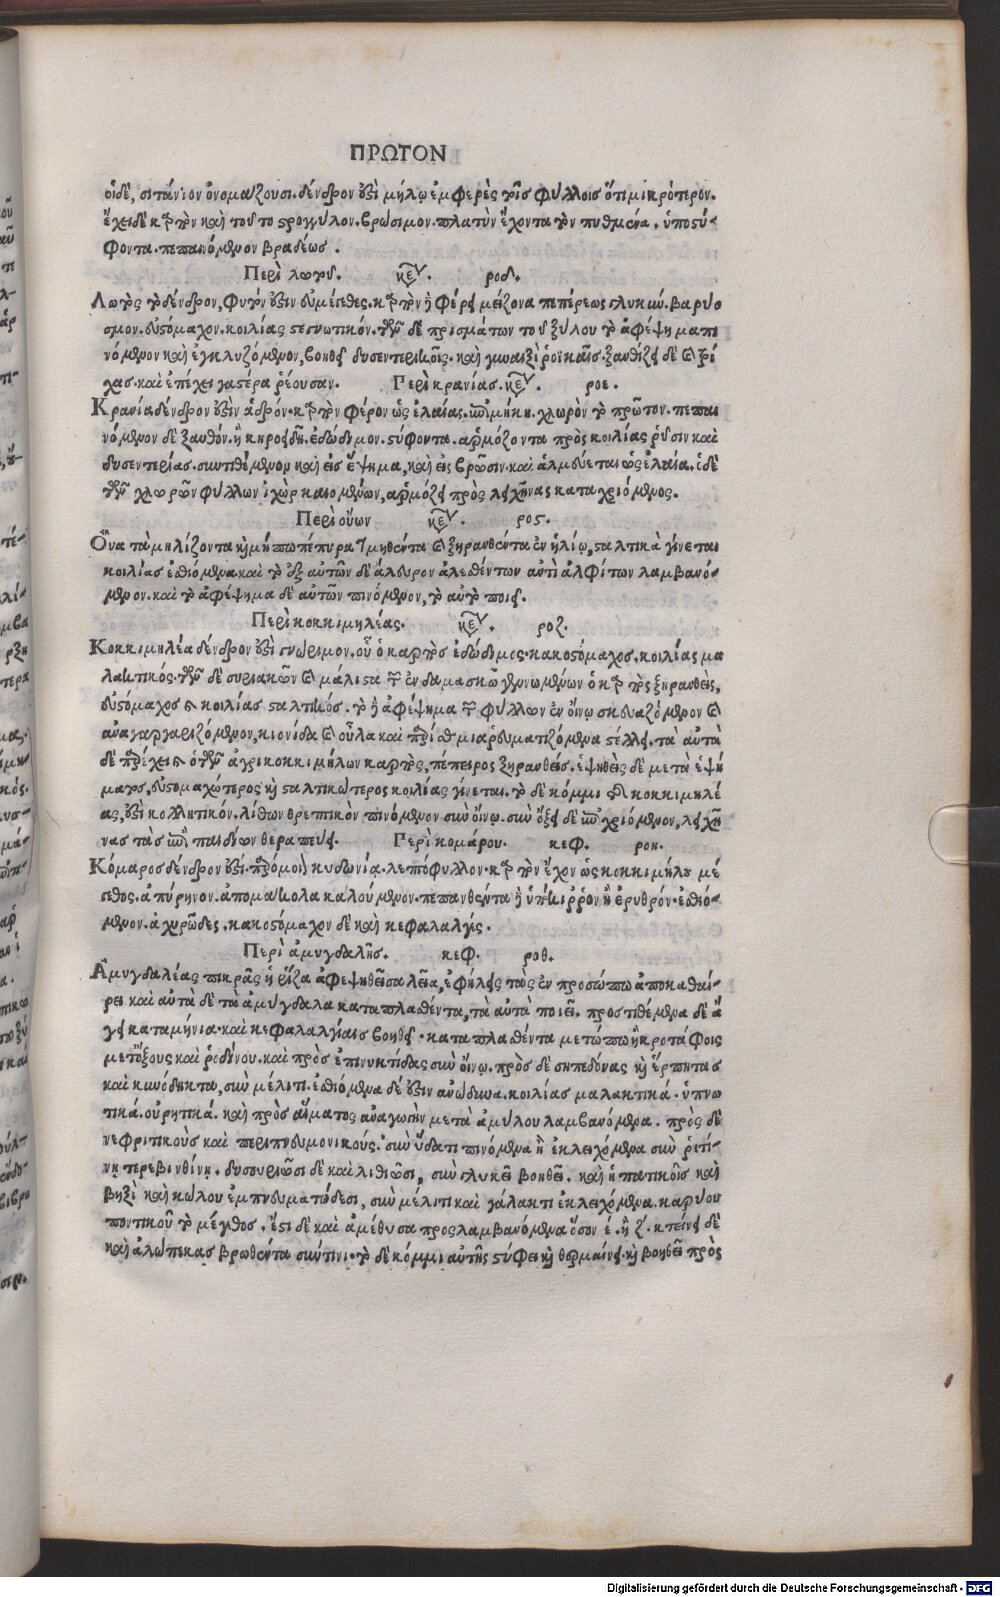 ΠΡΩΤΟΝ
οἱ δὲ, σιτάνιον ὀνομάζουσι. δένδρον ἐστὶ μήλῳ ἐμφερὲς τοῖς φύλλοις ὅτι μικρότερον.
ἔχει δὲ καρπὸν καὶ τοῦτο στρογγύλον. βρώσιμον. πλατὺν ἔχοντα τὸν πυθμένα. ὑποστύ-
φοντα. πεπαινόμενον βραδέως.
Περὶ λωτοῦ. κεφ. ροδ.
Λωτὸς τὸ δένδρον, φυτόν ἐστιν εὐμέγεθες. καρπὸν ἢ φέρει μείζονα πεπέρεως γλυκὺν. βαρυο
σμον. εὐστόμαχον. κοιλίας στεγνωτικόν. τῶν δὲ πρισμάτων τοῦ ξύλου τὸ ἀφέψημα πι
νόμενον καὶ ἐγκλυζόμενον, βοηθεῖ δυσεντερικοῖς. καὶ γυναιξὶ ῥοϊκαῖς. ξανθίζει δὲ καὶ τρί
χας. καὶ ἐπέχει γαστέρα ῥέουσαν. Περὶ κρανίας. κεφ. ροε.
Κρανία δένδρον ἐστὶν ἁδρόν. καρπὸν φέρον ὡς ἐλαίας. ἐπιμήκη. χλωρὸν τὸ πρῶτον. πεπαι
νόμενον δὲ ξανθόν. ἢ κηροειδῆ. ἐδώδιμον. στύφοντα. ἁρμόζοντα πρὸς κοιλίας ῥύσιν καὶ
δυσεντερίας. συντιθέμενον καὶ εἰς ἕψημα, καὶ εἰς βρῶσιν. καὶ ἁλμεύεται ὡς ἐλαία. ὁ δὲ
τῶν χλωρῶν φύλλων ἰχὼρ καιομένων, ἁρμόζει πρὸς λειχῆνας καταχριόμενος.
Περὶ οὔων κεφ. ρος.
Ὄυα τὰ μηλίζοντα καὶ μήπω πέπυρα τμηθέντα καὶ ξηρανθέντα ἐν ἡλίῳ, σταλτικὰ γίνεται
κοιλίας ἐσθιόμενα. καὶ τὸ ἐξ αὐτῶν δὲ ἄλευρον ἀλεσθέντων ἀντὶ ἀλφίτων λαμβανό-
μενον. καὶ τὸ ἀφέψημα δὲ αὐτῶν πινόμενον, τὸ αὐτὸ ποιεῖ.
Περὶ κοκκιμηλέας. κεφ. ροζ.
Κοκκιμηλέα δένδρον ἐστὶ γνώριμον. οὗ ὁ καρπὸς ἐδώδιμος. κακοστόμαχος. κοιλίας μα
λακτικός. τῶν δὲ συριακῶν καὶ μάλιστα τῶν ἐν δαμασκῷ γεννωμένων ὁ καρπὸς ξηρανθεὶς,
εὐστόμαχος καὶ κοιλίας σταλτικός. τὸ ἢ ἀφέψημα τῶν φύλλων ἐν οἴνῳ σκευαζόμενον καὶ
ἀναγαργαριζόμενον, κιονίδα καὶ οὖλα καὶ παρίσθμια ῥευματιζόμενα στέλλει. τὰ αὐτὰ
δὲ παρέχει καὶ ὁ τῶν ἀγρικοκκιμήλων καρπὸς, πέπειρος ξηρανθείς. ἑψηθεὶς δὲ μετὰ ἑψή
ματος, εὐστομαχώτερος καὶ σταλτικώτερος κοιλίας γίνεται. τὸ δὲ κόμμι τῆς κοκκιμηλέ
ας, ἐστὶ κολλητικόν. λίθων θρεπτικὸν πινόμενον σὺν οἴνῳ. σὺν ὄξει δὲ ἐπιχριόμενον, λειχῆ
νας τὰς ἐπὶ παιδίων θεραπεύει. Περὶ κομάρου. κεφ. ροη.
Κόμαρος δένδρον ἐστὶ. παρόμοιον κυδωνίᾳ. λεπτόφυλλον. καρπὸν ἔχον ὡς κοκκιμήλου μέ
γεθος. ἀπύρηνον. ἀπομαίκολα καλούμενον. πεπανθέντα ἢ ὑπόκιρρον ἢ ἐρυθρόν. ἐσθιό-
μενον. ἀχυρῶδες. κακοστόμαχον δὲ καὶ κεφαλαλγές.
Περὶ ἀμυγδαλῆς. κεφ. ροθ.
Ἀμυγδαλέας πικρᾶς ἡ ῥίζα ἀφεψηθεῖσα λεῖα, ἐφήλεις τὰς ἐν προσώπῳ ἀποκαθαί-
ρει καὶ αὐτὰ δὲ τὰ ἀμύγδαλα καταπλασθέντα, τὰ αὐτὰ ποιεῖ. προστιθέμενα δὲ ἄ
γει καταμήνια. καὶ κεφαλαλγίαις βοηθεῖ. καταπλασθέντα μετώπῳ ἢ κροτάφοις
μετ' ὄξους καὶ ῥοδίνου. καὶ πρὸς ἐπινυκτίδας σὺν οἴνῳ. πρὸς δὲ σηπεδόνας καὶ ἕρπητας
καὶ κυνόδηκτα, σὺν μέλιτι. ἐσθιόμενα δέ ἐστιν ἀνώδυνα. κοιλίας μαλακτικά. ὑπνω
τικά. οὐρητικά. καὶ πρὸς αἵματος ἀναγωγὴν μετὰ ἀμύλου λαμβανόμενα. πρὸς δὲ
νεφριτικοὺς καὶ περιπνευμονικούς. σὺν ὕδατι πινόμενα ἢ ἐκλειχόμενα σὺν ῥητί-
νῃ τερεβινθίνῃ. δυσουροῦσι δὲ καὶ λιθιῶσι, σὺν γλυκεῖ βοηθεῖ. καὶ ἡπατικοῖς καὶ
βηξὶ καὶ κώλου ἐμπνευματώδεσι, σὺν μέλιτι καὶ γάλακτι ἐκλειχόμενα. καρύου
ποντικοῦ τὸ μέγεθος. ἔστι δὲ καὶ ἀμέθυσα προσλαμβανόμενα ὅσον ἑ. ἢ ζ. κτείνει δὲ
καὶ ἀλώπεκας βρωθέντα σύν τινι. τὸ δὲ κόμμι αὐτῆς στύφει καὶ θερμαίνει. καὶ βοηθεῖ πρὸς
Digitalisierung gefördert durch die Deutsche Forschungsgemeinschaft - DFG